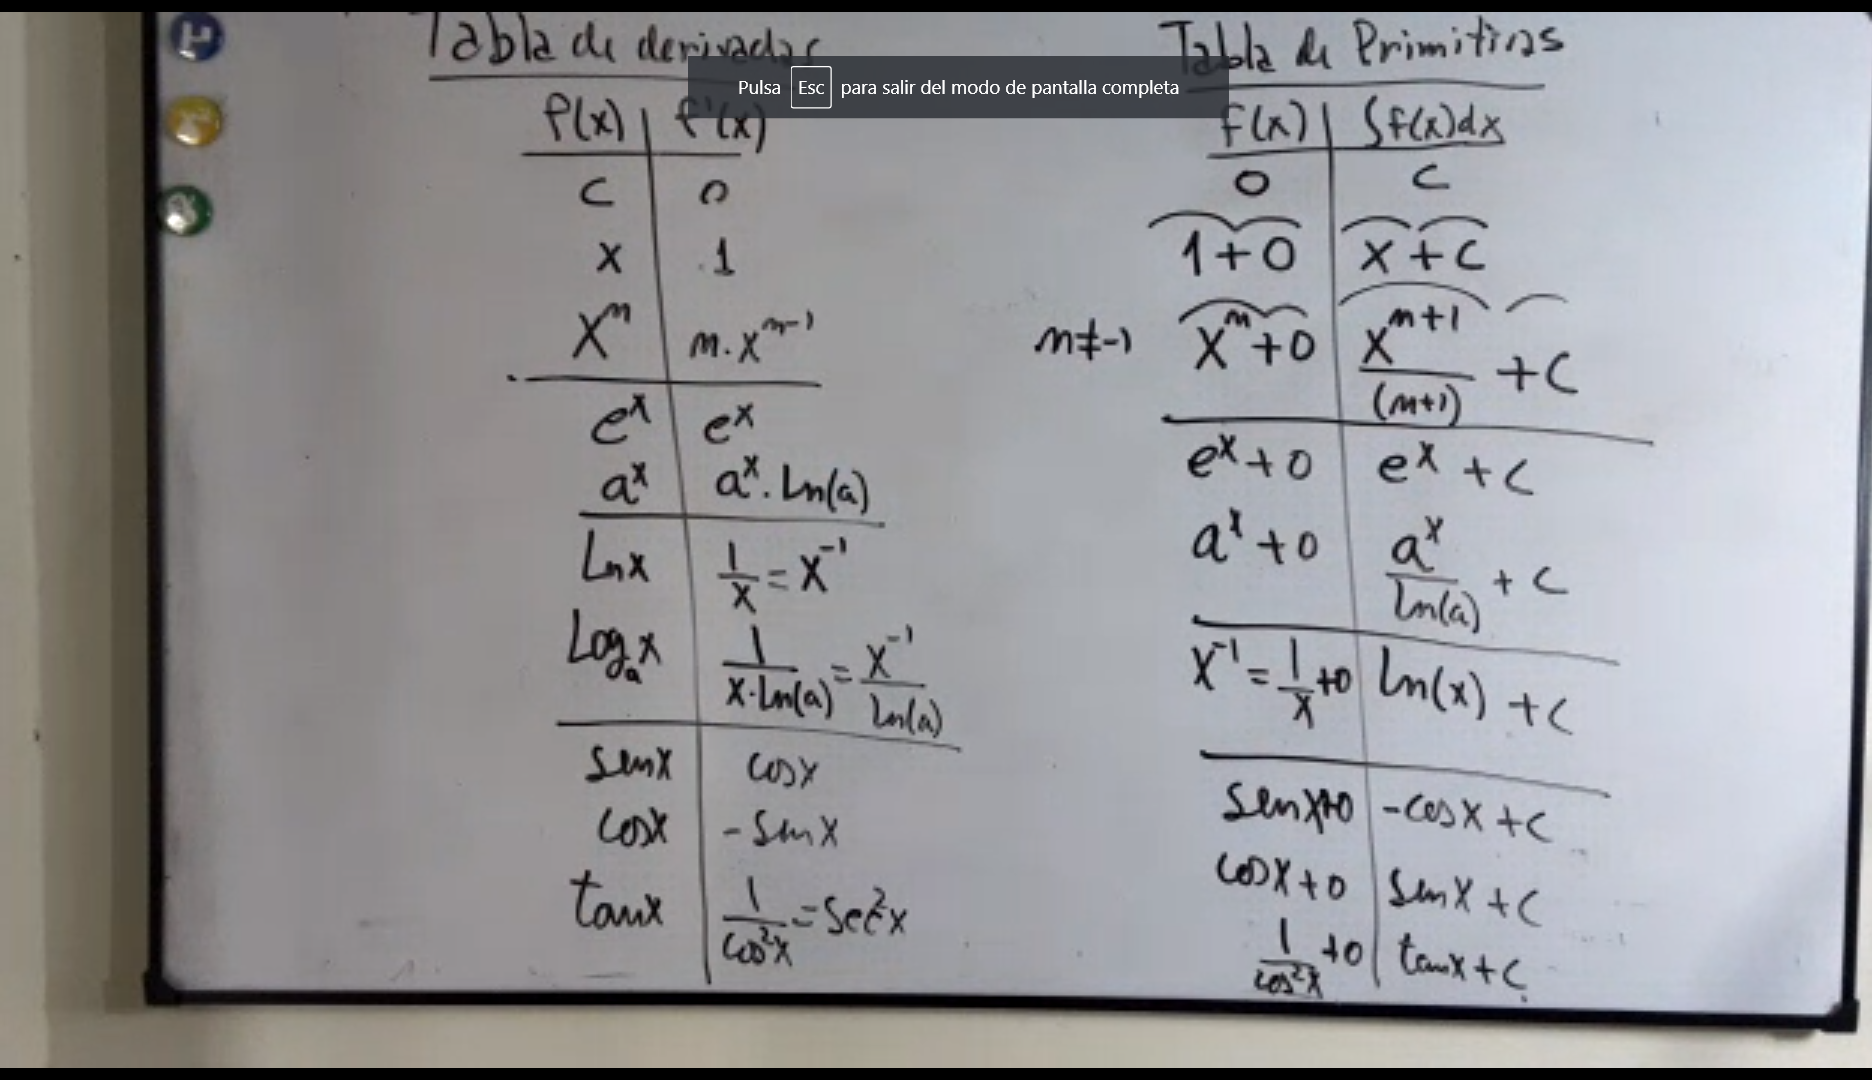 Tabla de derivadas
Pulsa Esc para salir del modo de pantalla completa
f(x) | f'(x)
C | 0
x | 1
x^m | m·x^(m-1)
e^x | e^x
a^x | a^x · Ln(a)
Lnx | 1/x = x^-1
Log_a x | 1/(x·Ln(a)) = x^-1/Ln(a)
senx | cosx
cosx | -senx
tanx | 1/cos²x = sec²x
Tabla de Primitivas
f(x) | ∫f(x)dx
0 | C
1+0 | x+C
m≠-1 x^m+0 | x^(m+1)/(m+1) + C
e^x+0 | e^x + C
a^x+0 | a^x/ln(a) + C
x^-1 = 1/x+0 | Ln(x) + C
senx+0 | -cosx + C
cosx+0 | senx + C
1/cos²x +0 | tanx + C